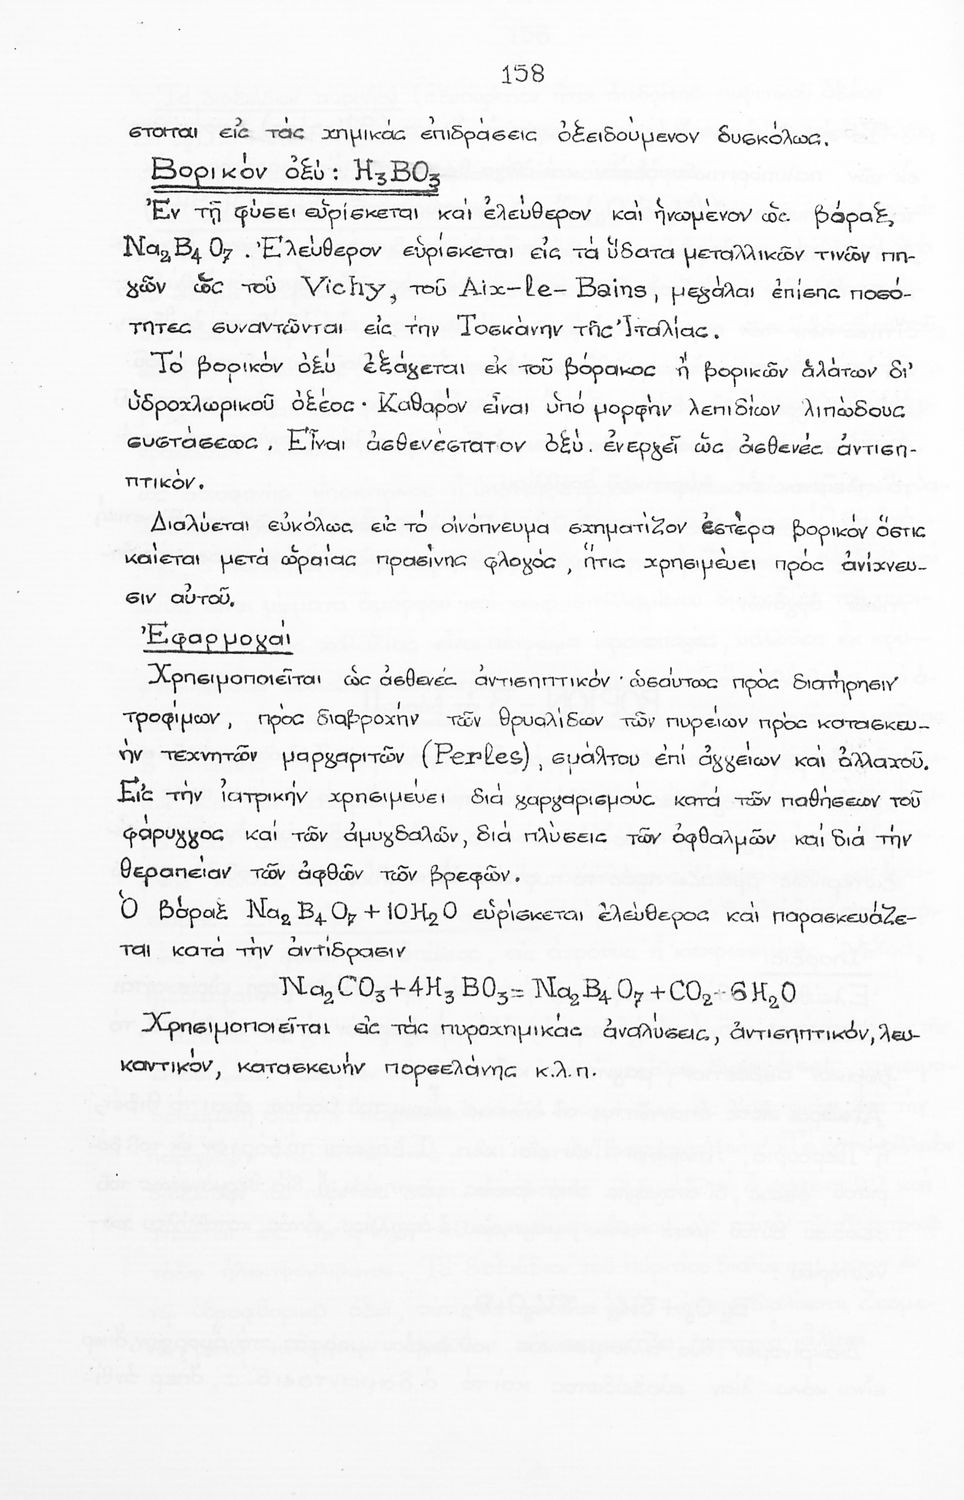 158
σταται εἰς τάς χημικάς ἐπιδράσεις ὀξειδούμενον δυσκόλως.
Βορικόν ὀξύ: H₃BO₃
Ἐν τῇ φύσει εὑρίσκεται καί ἐλεύθερον καί ἡνωμένον ὡς βόραξ,
Na₂B₄O₇. Ἐλεύθερον εὑρίσκεται εἰς τά ὕδατα μεταλλικῶν τινῶν πη-
γῶν ὡς τοῦ Vichy, τοῦ Aix-le-Bains, μεγάλαι ἐπίσης ποσό-
τητες συναντῶνται εἰς τήν Τοσκάνην τῆς Ἰταλίας.
Τό βορικόν ὀξύ ἐξάγεται ἐκ τοῦ βόρακος ἤ βορικῶν ἁλάτων δι'
ὑδροχλωρικοῦ ὀξέος· Καθαρόν εἶναι ὑπό μορφήν λεπιδίων λιπώδους
συστάσεως. Εἶναι ἀσθενέστατον ὀξύ. ἐνεργεῖ ὡς ἀσθενές ἀντιση-
πτικόν.
Διαλύεται εὐκόλως εἰς τό οἰνόπνευμα σχηματίζον ἐστέρα βορικόν ὅστις
καίεται μετά ὡραίας πρασίνης φλογός, ἥτις χρησιμεύει πρός ἀνίχνευ-
σιν αὐτοῦ.
Ἐφαρμογαί
Χρησιμοποιεῖται ὡς ἀσθενές ἀντισηπτικόν· ὡσαύτως πρός διατήρησιν
τροφίμων, πρός διαβροχήν τῶν θρυαλίδων τῶν πυρείων πρός κατασκευ-
ήν τεχνητῶν μαργαριτῶν (Perles), σμάλτου ἐπί ἀγγείων καί ἀλλαχοῦ.
Εἰς τήν ἰατρικήν χρησιμεύει διά γαργαρισμούς κατά τῶν παθήσεων τοῦ
φάρυγγος καί τῶν ἀμυγδαλῶν, διά πλύσεις τῶν ὀφθαλμῶν καί διά τήν
θεραπείαν τῶν ἀφθῶν τῶν βρεφῶν.
Ὁ βόραξ Na₂B₄O₇+10H₂O εὑρίσκεται ἐλεύθερος καί παρασκευάζε-
ται κατά τήν ἀντίδρασιν
Na₂CO₃+4H₃BO₃= Na₂B₄O₇+CO₂+6H₂O
Χρησιμοποιεῖται εἰς τάς πυροχημικάς ἀναλύσεις, ἀντισηπτικόν, λευ-
καντικόν, κατασκευήν πορσελάνης κ.λ.π.